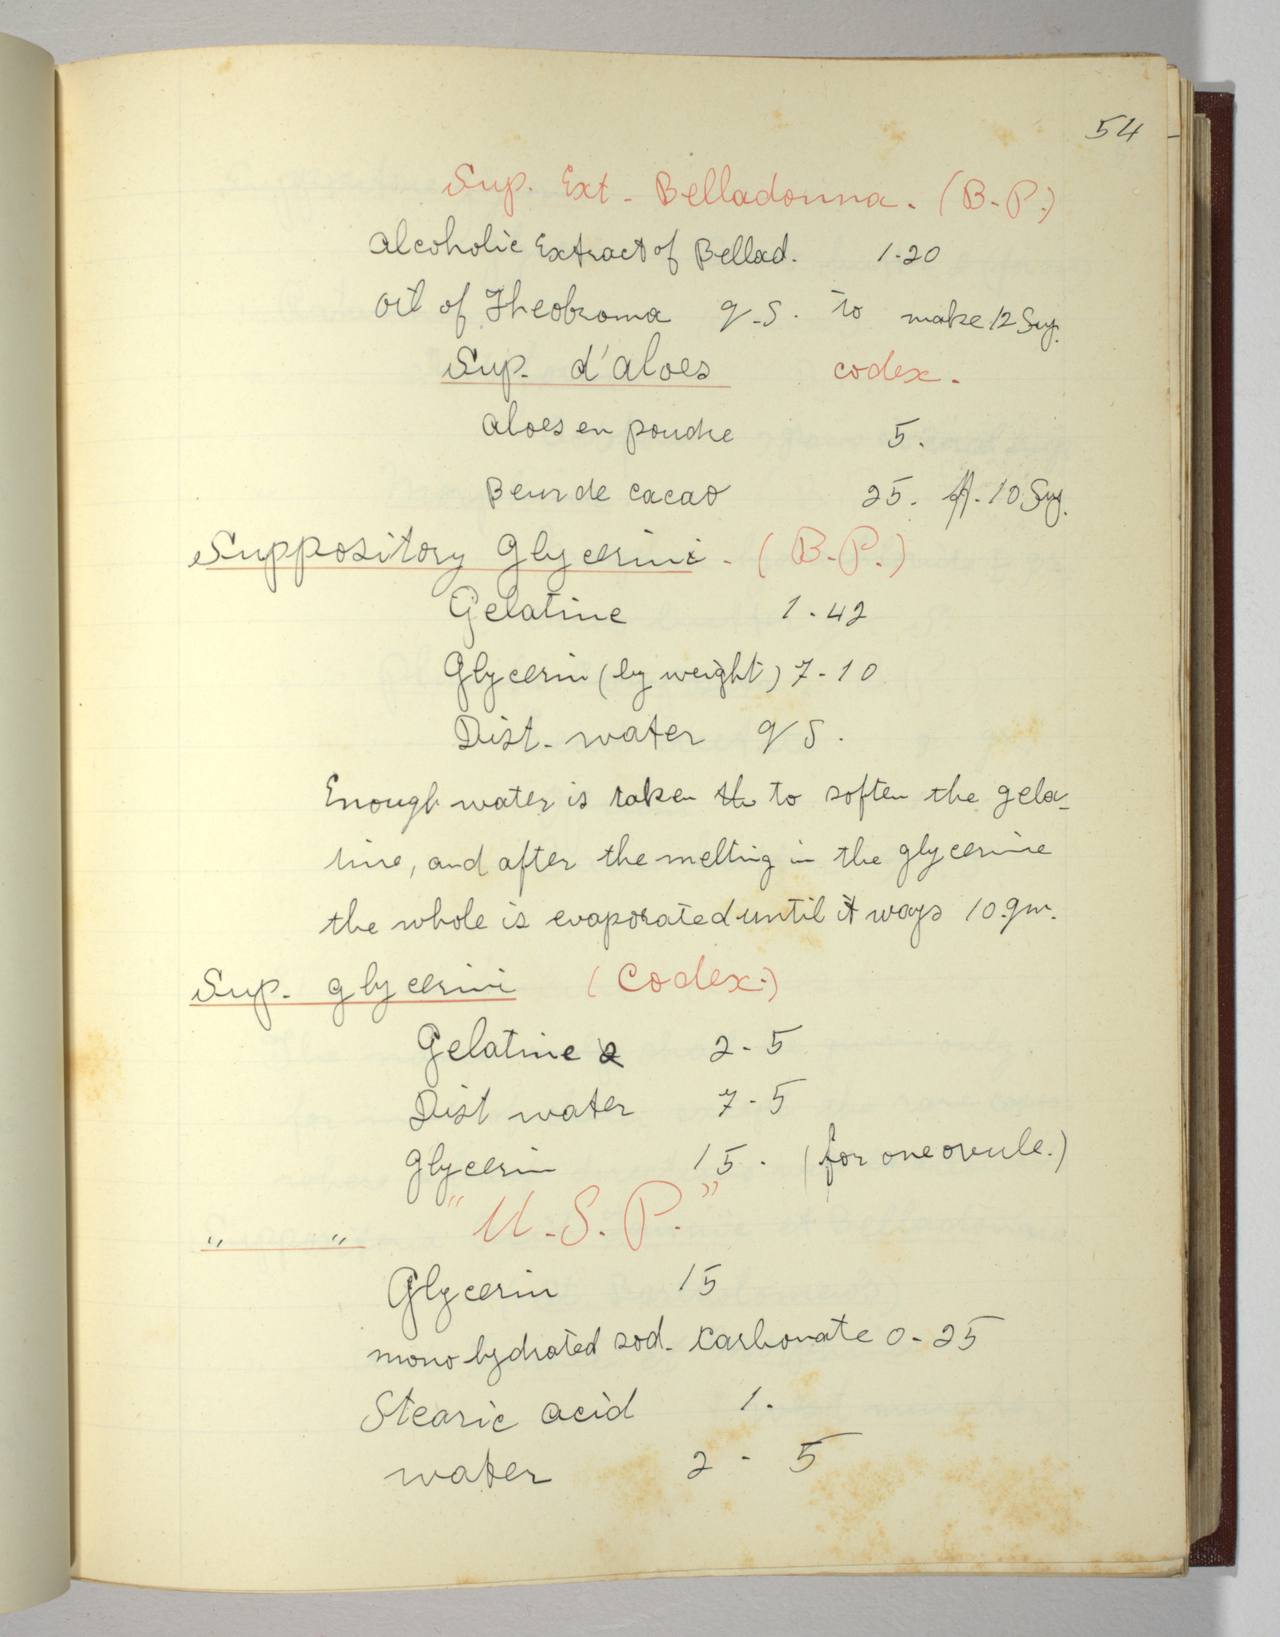 54
Sup. Ext. Belladonna. (B.P.)
Alcoholic Extract of Bellad. 1.20
Oil of Theobroma q.s. to make 12 Sup.
Sup. d'aloes codex.
Aloes en poudre 5.
Beur de cacao 25. ft. 10 Sup.
Suppository Glycerini. (B.P.)
Gelatine 1.42
Glycerin (by weight) 7.10
Dist. water q s.
Enough water is taken to soften the gela-
tine, and after the melting in the glycerine
the whole is evaporated until it ways 10.gm.
Sup. glycerini (Codex.)
Gelatine 2.5
Dist water 7.5
Glycerin 15. (for one ovule.)
" " "U.S.P."
Glycerin 15
mono hydrated sod. Carbonate 0.25
Stearic acid 1.
water 2.5